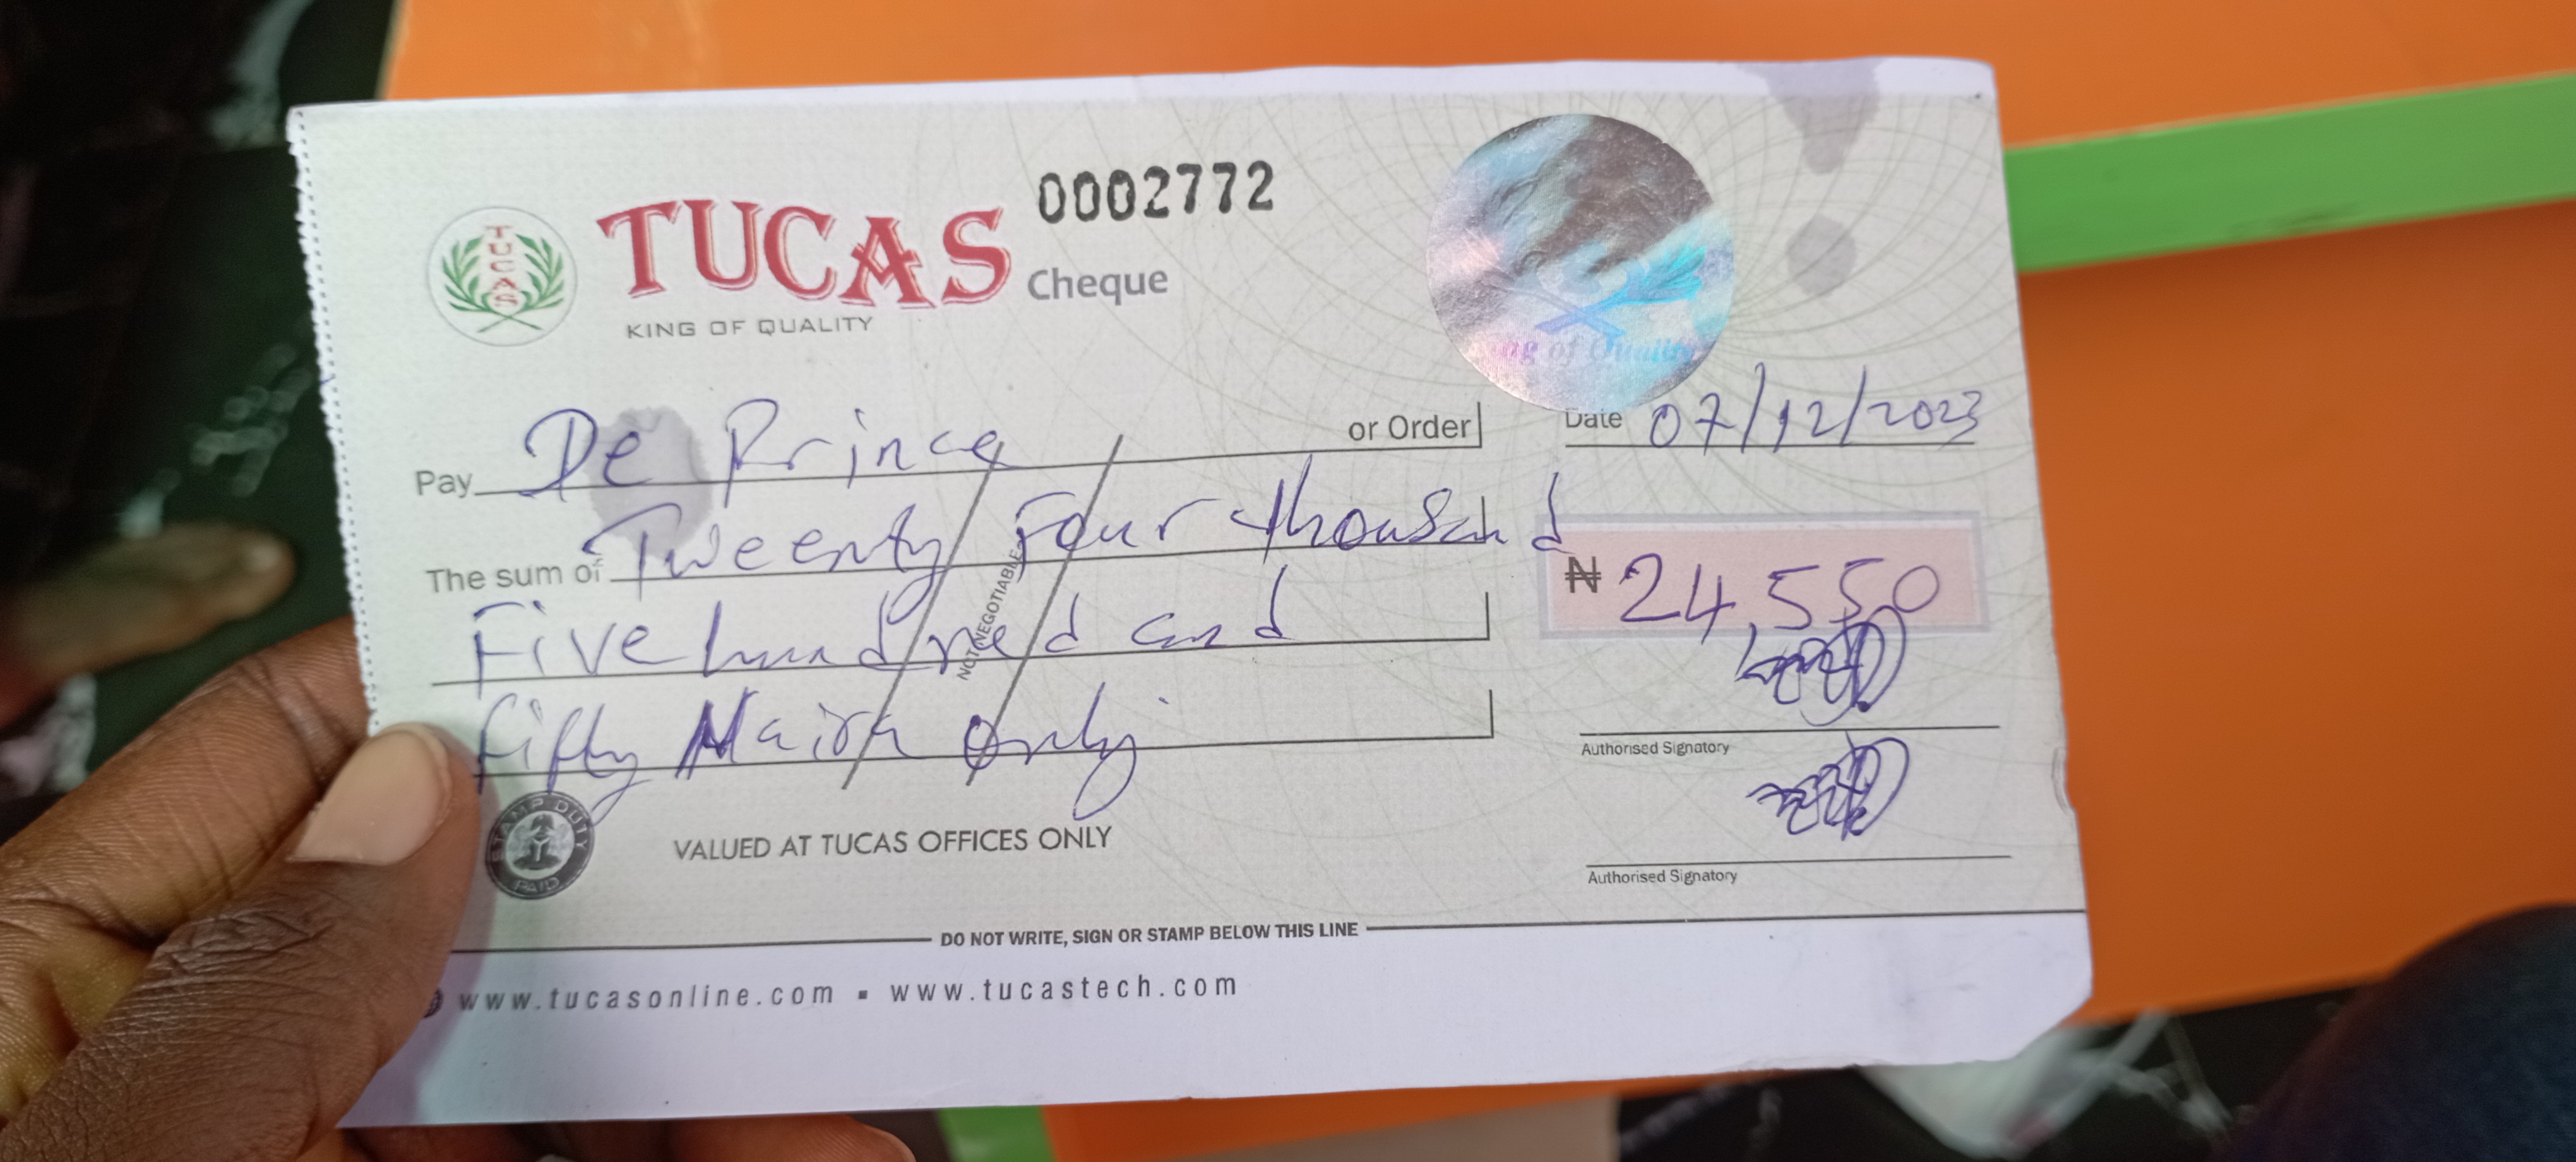 TUCAS
0002772
TUCAS Cheque
KING OF QUALITY
ng of Quality
Pay De Prince or Order
Date 07/12/2023
The sum of Tweenty Four thousand
₦ 24,550
Five hundred and
NOT NEGOTIABLE
Fifty Naira Only
Authorised Signatory
STAMP DUTY PAID
VALUED AT TUCAS OFFICES ONLY
Authorised Signatory
DO NOT WRITE, SIGN OR STAMP BELOW THIS LINE
www.tucasonline.com ▪ www.tucastech.com